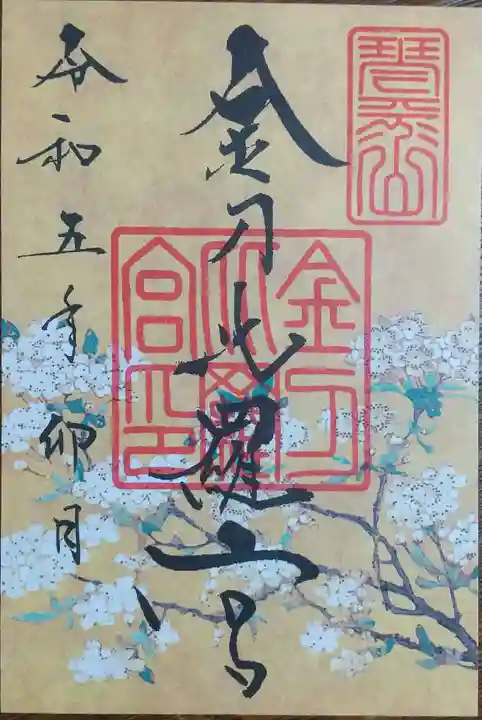 琴平山
金刀比羅宮
金刀比羅宮印
令和五年卯月